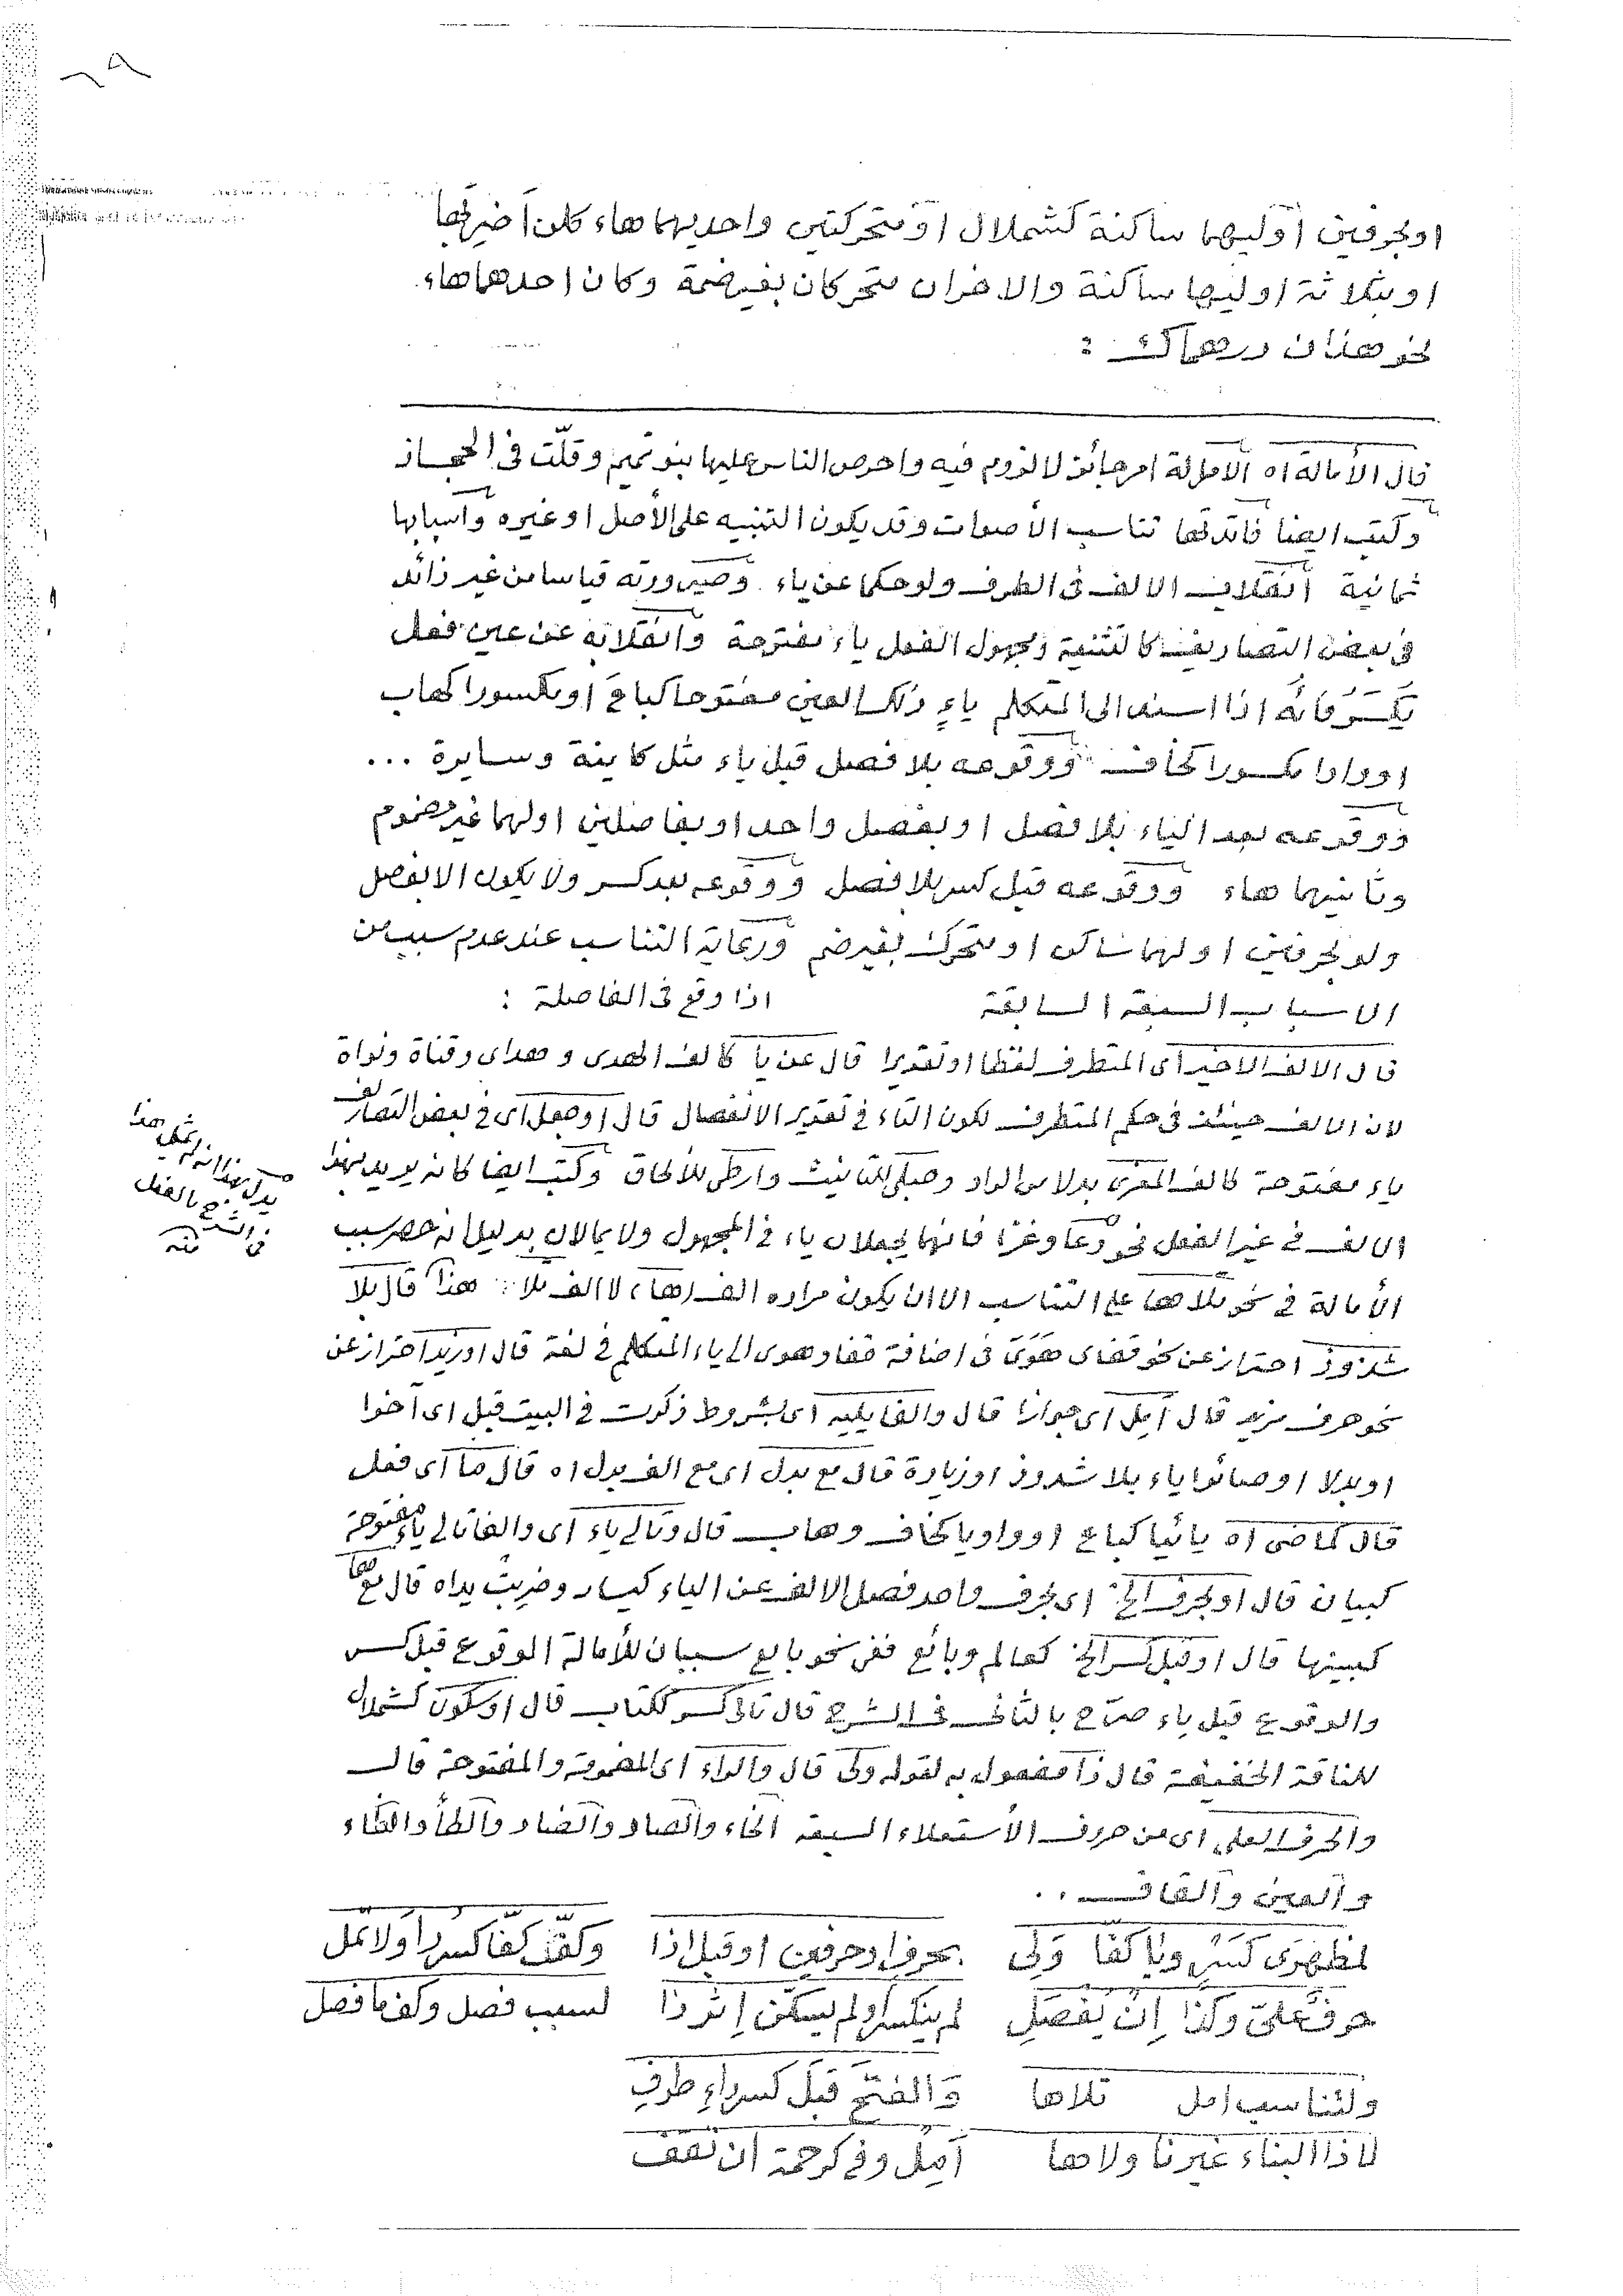 او بحرفين اوليهما ساكنة كشملال او متحركتين واحديهما هاء كلن اضربها
او بثلاثة اوليها ساكنة والاخران متحركان بغير ضمة وكان احدهما هاء
نحو هذان درهماك :
قال الأمالة اه الامالة امر جائز لا لزوم فيه واحرص الناس عليها بنو تميم وقلّت فى الحجاز
وكتب ايضا فائدتها تناسب الأصوات وقد يكون التنبيه على الأصل او غيره واسبابها
ثمانية انقلاب الالف فى الطرف ولو حكما عن ياء وصيرورته قياسا من غير زائد
فى بعض التصاريف كالتثنية ومجهول الفعل ياء مفتوحة وانقلابه عن عين فعل
يكسر فائه اذا اسند الى المتكلم ياء ذلك العين مفتوحا كباع او مكسورا كهاب
او واوا مكسورا كخاف ووقوعه بلا فصل قبل ياء مثل كاينة وسايرة ...
ووقوعه بعد الياء بلا فصل او بفصل واحد او بفاصلين اولهما غير مضموم
وثانيهما هاء ووقوعه قبل كسر بلا فصل ووقوعه بعد كسر ولا يكون الا بفصل
ولو بحرفين اولهما ساكن او متحرك بغير ضم ورعاية التناسب عند عدم سبب من
الاسباب السبعة السابقة اذا وقع فى الفاصلة :
قال الالف الاخير اى المتطرف لفظا او تقديرا قال عن يا كالف الهدى و هداى وقناة ونواة
لان الالف حينئذ فى حكم المتطرف لكون التاء فى تقدير الانفصال قال او جعل اى فى بعض التصاريف
ياء مفتوحة كالف المغزى بدلا من الواو وحبلى للتانيث وارطى للألحاق وكتب ايضا كانه يريد بهذا
الالف فى غير الفعل نحو دعا وغزا فانهما يجعلان ياء فى المجهول ولا يمالان بدليل انه حصر سبب
الأمالة فى نحو تلاها على التناسب الا ان يكون مراده الف (ها) لا الف تلا هذا قال بلا
شذوذ احتراز عن نحو قفاى هوى فى اضافة قفا وهوى الى ياء المتكلم فى لغة قال او زيد احتراز عن
نحو حرف مزيد قال امل اى جوازا قال والفا يليه اى بشروط ذكرت فى البيت قبل اى آخرا
او بدلا او صائرا ياء بلا شذوذ او زيادة قال مع بدل اى مع الف بدل اه قال ما اى فعل
قال كماضى اه يائيا كباع او واويا كخاف وهاب قال وتالى ياء اى والفا تالى ياء مفتوحة
كبيان قال او بحرف الخ اى بحرف واحد فصل الالف عن الياء كيسار وضربت يداه قال مع ها
كبينها قال او قبل كسر الخ كعالم وبائع ففى نحو بايع سببان للأمالة الوقوع قبل كسر
والوقوع قبل ياء صرّح بالثانى فى الشرح قال تالى كسر ككتاب قال او سكون كشملال
للناقة الخفيفة قال ذا مفعول به لقوله ولى قال والراء اى المضمومة والمفتوحة قال
والحرف العلى اى من حروف الأستعلاء السبعة الخاء والصاد والضاد والطاء والظاء
والغين والقاف ..
لمظهرى كسر ويا كفّا ولى بحرف او حرفين او قبل اذا وكفّ كفّا كسر را ولا تمل
حرف على وكذا ان يفصل لم ينكسر او لم يسكن اثر ذا لسبب فصل وكف ما فصل
ولتناسب امل تلاها والفتح قبل كسر راء طرف
لا ذا البناء غير نا ولا ها امل وفى كرحمة ان تقف
يدل بهذا انه لم يمثل هذا
فى الشرح بالفعل
منه